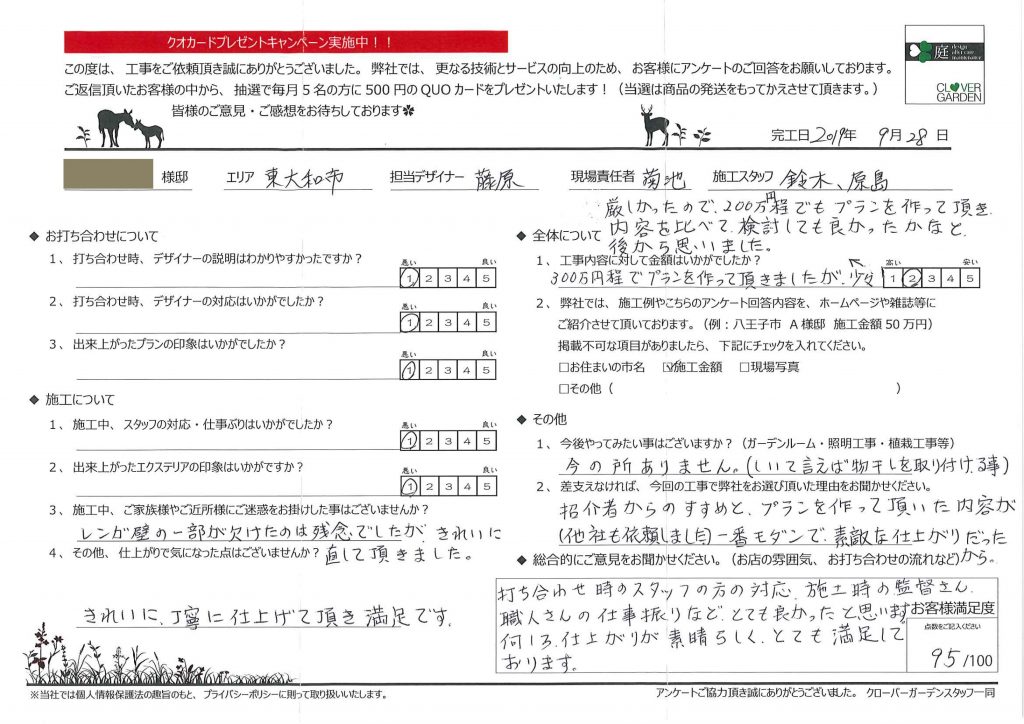 クオカードプレゼントキャンペーン実施中！！
この度は、工事をご依頼頂き誠にありがとうございました。弊社では、更なる技術とサービスの向上のため、お客様にアンケートのご回答をお願いしております。
ご返信頂いたお客様の中から、抽選で毎月５名の方に500円のQUOカードをプレゼントいたします！（当選は商品の発送をもってかえさせて頂きます。）
皆様のご意見・ご感想をお待ちしております✿
庭
CLOVER
GARDEN
完工日 2019年 9月 28日
様邸 エリア 東大和市 担当デザイナー 藤原 現場責任者 菊池 施工スタッフ 鈴木、原島
◆ お打ち合わせについて
１、打ち合わせ時、デザイナーの説明はわかりやすかったですか？
悪い 良い
1 2 3 4 5
２、打ち合わせ時、デザイナーの対応はいかがでしたか？
悪い 良い
1 2 3 4 5
３、出来上がったプランの印象はいかがでしたか？
悪い 良い
1 2 3 4 5
◆ 施工について
１、施工中、スタッフの対応・仕事ぶりはいかがでしたか？
悪い 良い
1 2 3 4 5
２、出来上がったエクステリアの印象はいかがですか？
悪い 良い
1 2 3 4 5
３、施工中、ご家族様やご近所様にご迷惑をお掛けした事はございませんか？
レンガ壁の一部が欠けたのは残念でしたが、きれいに
直して頂きました。
４、その他、仕上がりで気になった点はございませんか？
きれいに、丁寧に仕上げて頂き満足です。
◆ 全体について
１、工事内容に対して金額はいかがでしたか？
高い 安い
1 2 3 4 5
300万円程でプランを作って頂きましたが、少々
厳しかったので、200万円程でもプランを作って頂き、
内容を比べて、検討しても良かったかなと、
後から思いました。
２、弊社では、施工例やこちらのアンケート回答内容を、ホームページや雑誌等に
ご紹介させて頂いております。（例：八王子市 A様邸 施工金額50万円）
掲載不可な項目がありましたら、下記にチェックを入れてください。
□お住まいの市名 ☑施工金額 □現場写真
□その他（ ）
◆ その他
１、今後やってみたい事はございますか？（ガーデンルーム・照明工事・植栽工事等）
今の所ありません。（しいて言えば物干しを取り付ける事）
２、差支えなければ、今回の工事で弊社をお選び頂いた理由をお聞かせください。
招介者からのすすめと、プランを作って頂いた内容が
（他社も依頼しました）一番モダンで、素敵な仕上がりだった
から。
◆ 総合的にご意見をお聞かせください。（お店の雰囲気、お打ち合わせの流れなど）
打ち合わせ時のスタッフの方の対応、施工時の監督さん、
職人さんの仕事振りなど、とても良かったと思います。
何しろ、仕上がりが素晴らしく、とても満足して
おります。
お客様満足度
点数をご記入ください
95/100
※当社では個人情報保護法の趣旨のもと、プライバシーポリシーに則って取り扱いいたします。
アンケートご協力頂き誠にありがとうございました。クローバーガーデンスタッフ一同